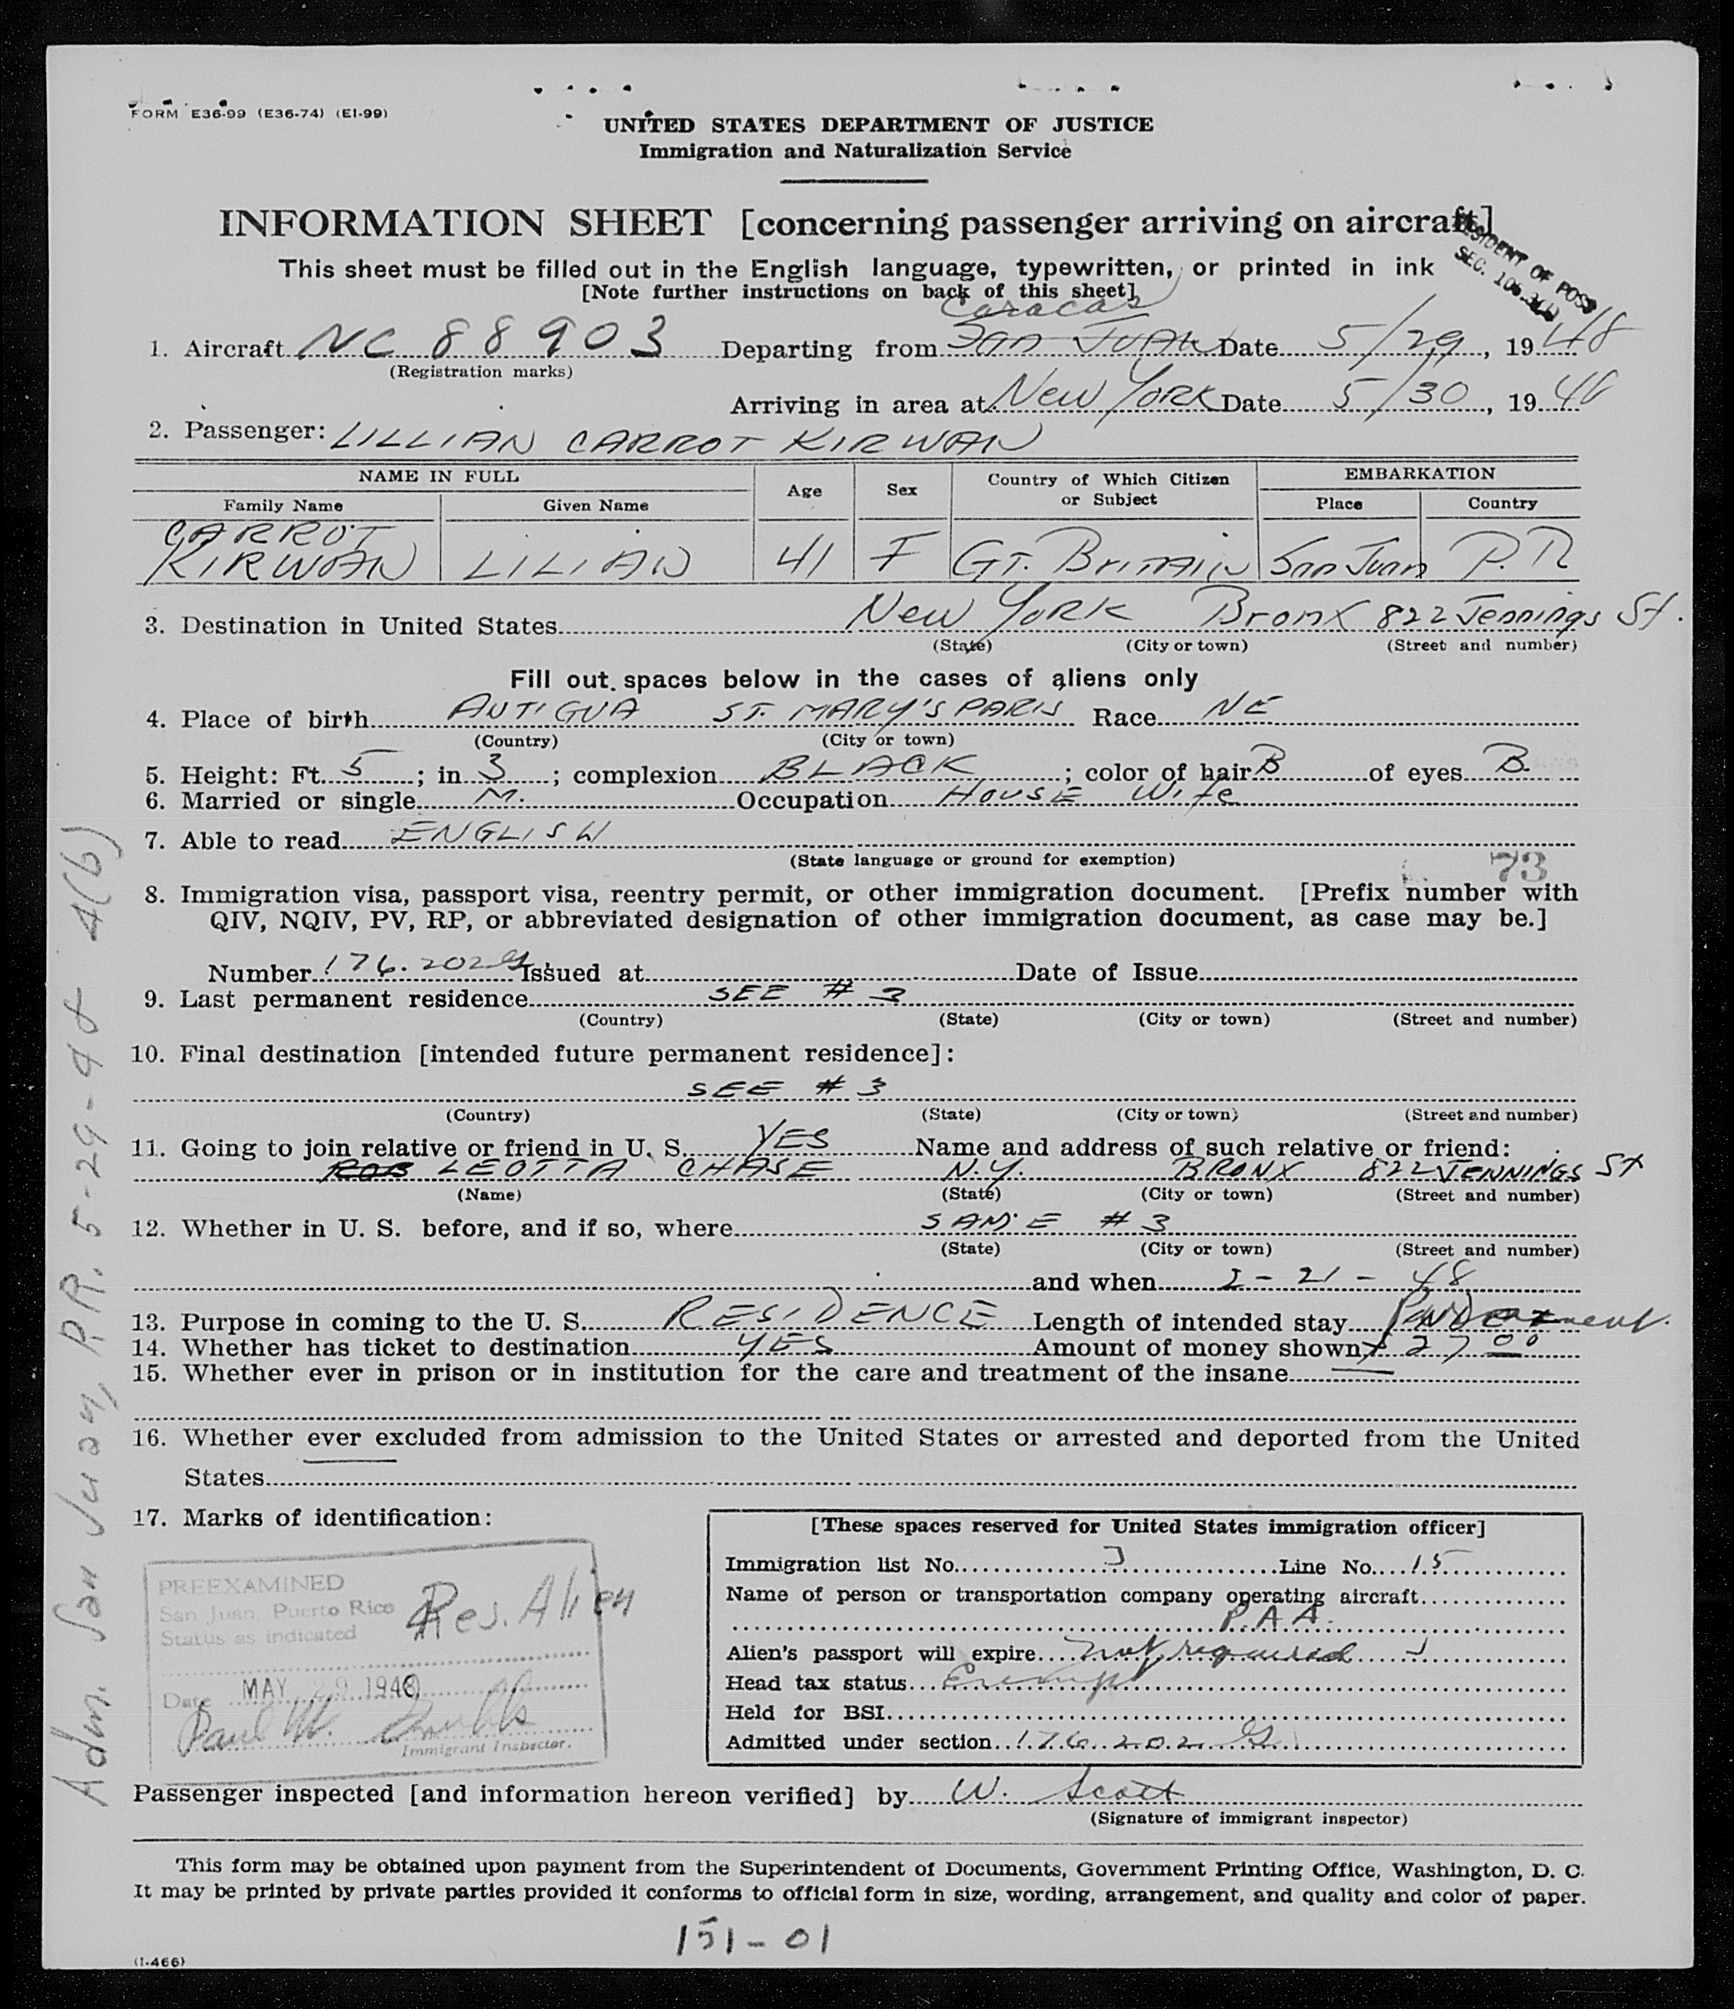 FORM E36-99 (E36-74) (EI-99)
UNITED STATES DEPARTMENT OF JUSTICE
Immigration and Naturalization Service
INFORMATION SHEET [concerning passenger arriving on aircraft]
This sheet must be filled out in the English language, typewritten, or printed in ink
[Note further instructions on back of this sheet]
RESIDENT OF POSS
SEC.
Caracas
1. Aircraft NC 88903 Departing from San Juan Date 5/29, 1948
(Registration marks)
Arriving in area at New York Date 5/30, 1948
2. Passenger: LILLIAN CARROT KIRWAN
NAME IN FULL Age Sex Country of Which Citizen or Subject EMBARKATION
Family Name Given Name Place Country
CARROT
KIRWAN LILIAN 41 F GT. BRITAIN San Juan P.R
3. Destination in United States New York Bronx 822 Jennings St.
(State) (City or town) (Street and number)
Fill out spaces below in the cases of aliens only
4. Place of birth ANTIGUA ST. MARY'S PARIS Race NE
(Country) (City or town)
5. Height: Ft. 5; in 3; complexion BLACK; color of hair B of eyes B.
6. Married or single M. Occupation HOUSE Wife
7. Able to read ENGLISH
(State language or ground for exemption)
73
8. Immigration visa, passport visa, reentry permit, or other immigration document. [Prefix number with
QIV, NQIV, PV, RP, or abbreviated designation of other immigration document, as case may be.]
Number 176.202 g Issued at Date of Issue
9. Last permanent residence SEE # 3
(Country) (State) (City or town) (Street and number)
10. Final destination [intended future permanent residece]:
SEE # 3
(Country) (State) (City or town) (Street and number)
11. Going to join relative or friend in U. S. YES Name and address of such relative or friend:
LEOTTA CHASE N.Y. BRONX 822 JENNINGS St
(Name) (State) (City or town) (Street and number)
12. Whether in U. S. before, and if so, where SAME # 3
(State) (City or town) (Street and number)
and when 2-21-48
13. Purpose in coming to the U. S. RESIDENCE Length of intended stay
14. Whether has ticket to destination YES Amount of money shown 27 00
15. Whether ever in prison or in institution for the care and treatment of the insane
16. Whether ever excluded from admission to the United States or arrested and deported from the United
States
17. Marks of identification:
PREEXAMINED
San Juan, Puerto Rico
Status as indicated
Res. Alien
Date MAY 29 1948
Paul W.
Immigrant Inspector.
[These spaces reserved for United States immigration officer]
Immigration list No. 3 Line No. 15
Name of person or transportation company operating aircraft
P.A.A.
Alien's passport will expire not required
Head tax status Exempt
Held for BSI
Admitted under section 176.202 G
Passenger inspected [and information hereon verified] by W. Scott
(Signature of immigrant inspector)
This form may be obtained upon payment from the Superintendent of Documents, Government Printing Office, Washington, D. C.
It may be printed by private parties provided it conforms to official form in size, wording, arrangement, and quality and color of paper.
151-01
(I-466)
Adm. San Juan, P.R. 5-29-48 4(b)